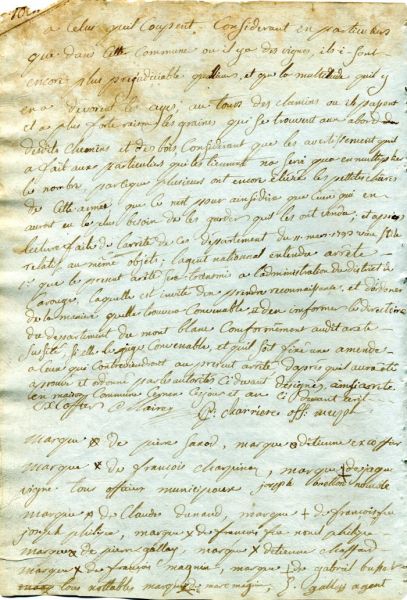 a celui qu'il coupent. Considerant en particulier
que dans cette commune ou il ya des vignes, ils i sont
encore plus prejudiciable qualieurs, et que la multitude quil y
en a devorent les ayes, au tours des chamins ou ils pasent
et a plus forte raison les graines qui se trouvent aux abord
desdits chemins et des bois Considerant que les avertissement quil
a fait aux particuliers qui les tiennent na servi que en multiplier
le nombre, parceque plusieurs ont encore élévé les petittes chevres
de cette année que ce n'est pour ainsi dire que ceux qui en
auront eu le plus besoin de les garder qui les ont vendu; et après
lecture faite de l'arrété de ce département du 11 mars 1793
relatif au même objet; lagent national entendu arrete
1° que le present arrêté sera transmis a l'administration du district de
Carouge, laquelle est invité d'en prendre reconnaissance, et dordoner
de la maniere quelle trouvera convenable et den conformer le directoire
du departement du mont blanc Conformement audit arrété
susdit, si elle le juge convenable, et quil soit fixé une amende
a ceux qui contreviendront au présent arrêté dapres quil aura été
aprouvé et ordoné par les autorités ci devant designés, ainsi arrété
en maison Commune Cernex ce jour et an Ci devant écrit
excoffier maire P. charriere off. municip
marque de pierre jacod, marque d'étienne excoffier
marque x de francois chapuiset, marque de jaque
vigne tous officier municipaux joseph notable
marque de Claude dunand, marque + de francois feu
joseph philipe, marque x de francois feu noel philipe
marque de pierre gallay, marque x detienne chaffard
marque x de françois magnin, marque + de gabriel bussat
tous nottables marque de marc magnin, J. gallay agent